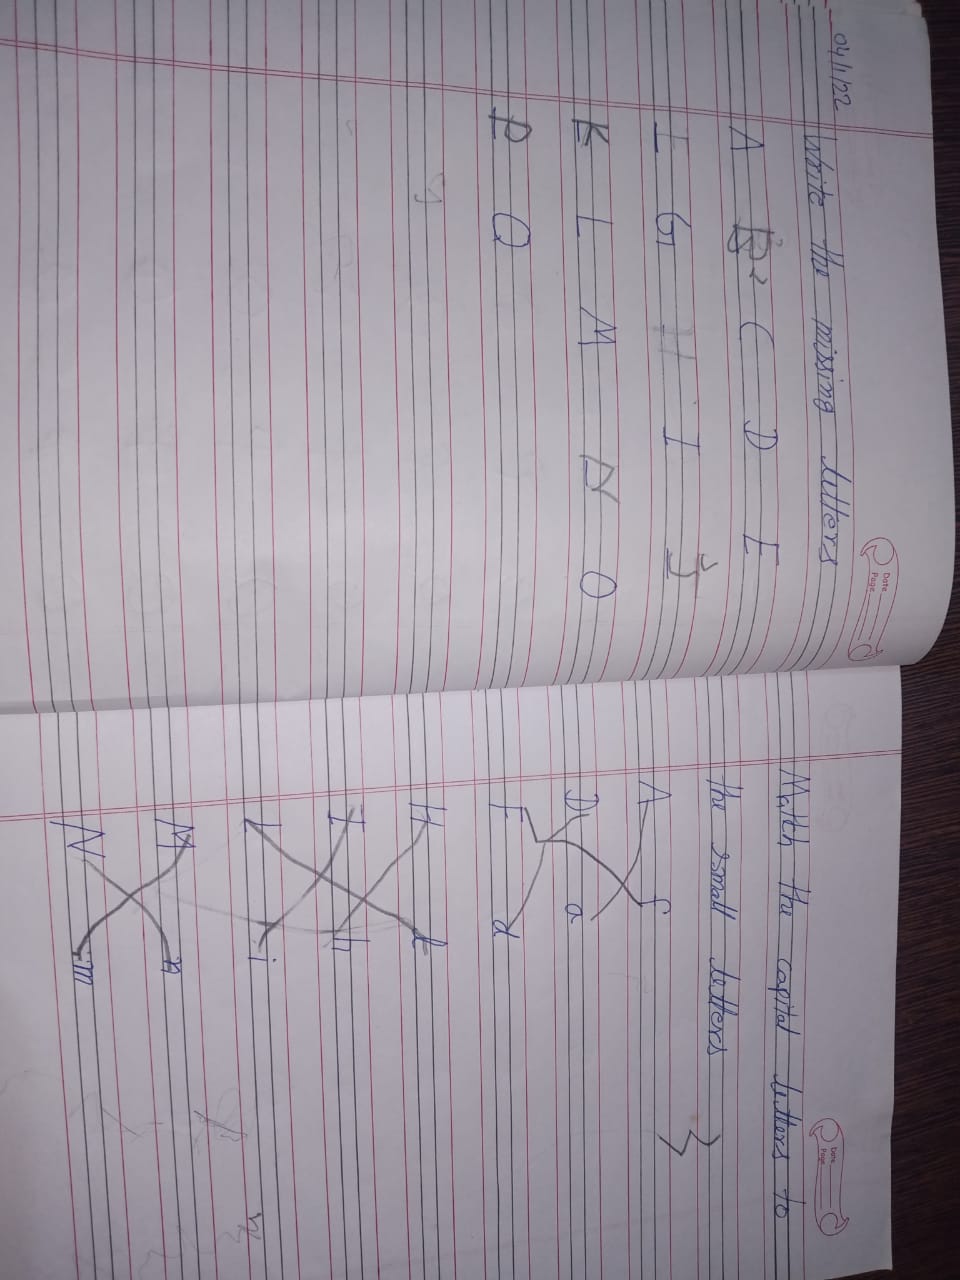 04/1/22
Date
Page
Write the missing letters
A B C D E
I G H I J
K L M N O
P Q
Date
Page
Match the capital letters to
the small letters
A f
D a
F d
H l
I h
L i
M n
N m